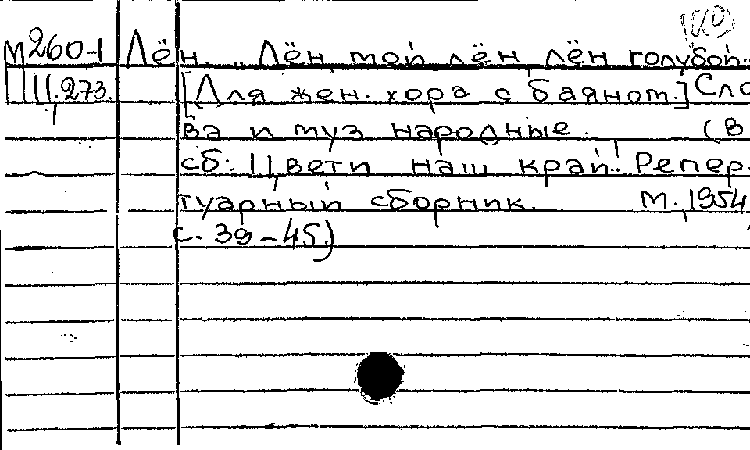 М260-1 Лён. „Лён мой лён лён голубой..
III.273. [Для жен. хора с баяном.] Сло
ва и муз народные. (В
сб: Цвети наш край!. Репер-
туарный сборник. М., 1954,
с. 39-45)